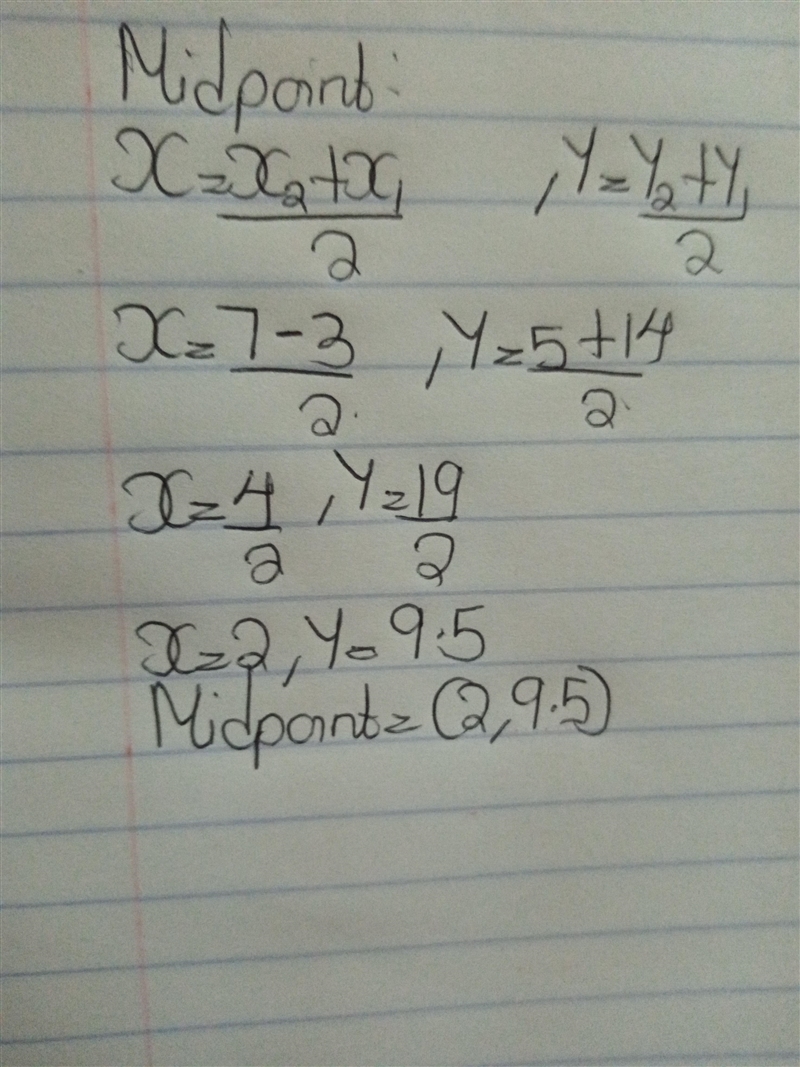 Midpoint:
x = x₂ + x₁ / 2 , Y = Y₂ + Y₁ / 2
x = 7 - 3 / 2 , Y = 5 + 14 / 2
x = 4 / 2 , Y = 19 / 2
x = 2 , Y = 9.5
Midpoint = (2, 9.5)